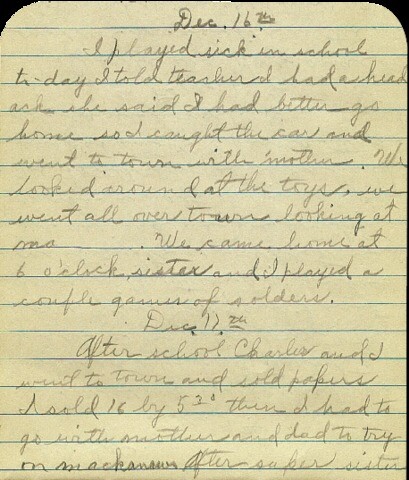 Dec. 16th
I played sick in school
to-day I told teacher I had a head
ack she said I had better go
home so I caught the car and
went to town with mother. We
looked around at the toys, we
went all over town looking at
ma . We came home at
6 o'clock, sister and I played a
couple games of solders.
Dec. 17th
After school Charles and I
went to town and sold papers
I sold 16 by 5 30 then I had to
go with mother and dad to try
on After super sister